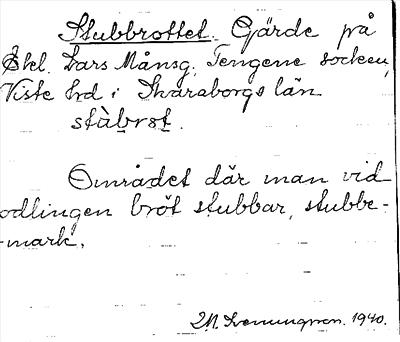 Stubbrottet. Gärde på
Ekel. Lars Månsg. Tengene socken,
Viste hrd i Skaraborgs län
stàbrot.
Området där man vid
odlingen bröt stubbar, stubbe-
-mark.
1940.